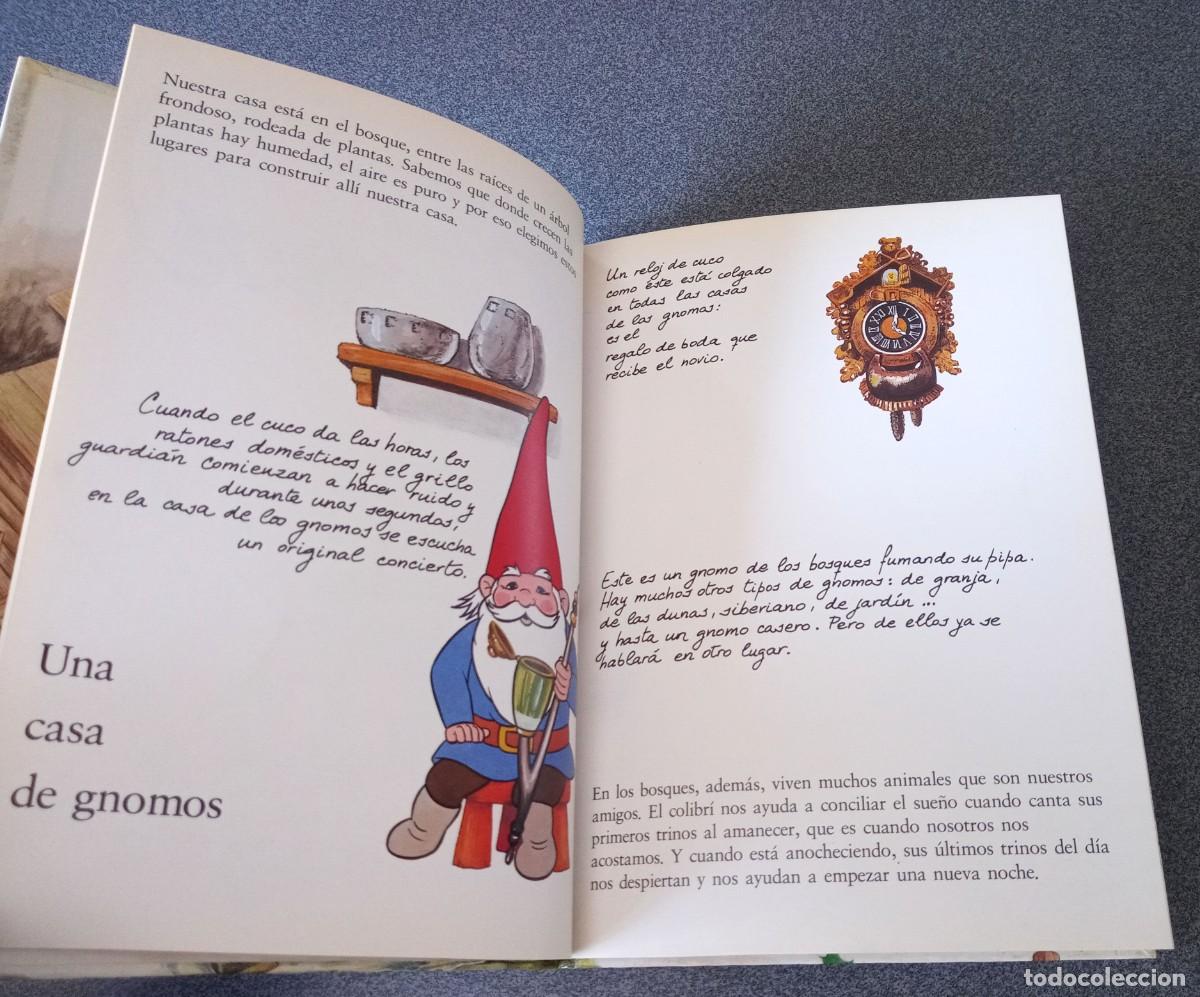 Nuestra casa está en el bosque, entre las raíces de un árbol
frondoso, rodeada de plantas. Sabemos que donde crecen las
plantas hay humedad, el aire es puro y por eso elegimos estos
lugares para construir allí nuestra casa.
Cuando el cuco da las horas, los
ratones domésticos y el grillo
guardián comienzan a hacer ruido y
durante unos segundos,
en la casa de los gnomos se escucha
un original concierto.
Una
casa
de gnomos
Un reloj de cuco
como éste está colgado
en todas las casas
de los gnomos:
es el
regalo de boda que
recibe el novio.
XII
Este es un gnomo de los bosques fumando su pipa.
Hay muchos otros tipos de gnomos: de granja,
de las dunas, siberiano, de jardín ...
y hasta un gnomo casero. Pero de ellos ya se
hablará en otro lugar.
En los bosques, además, viven muchos animales que son nuestros
amigos. El colibrí nos ayuda a conciliar el sueño cuando canta sus
primeros trinos al amanecer, que es cuando nosotros nos
acostamos. Y cuando está anocheciendo, sus últimos trinos del día
nos despiertan y nos ayudan a empezar una nueva noche.
todocoleccion